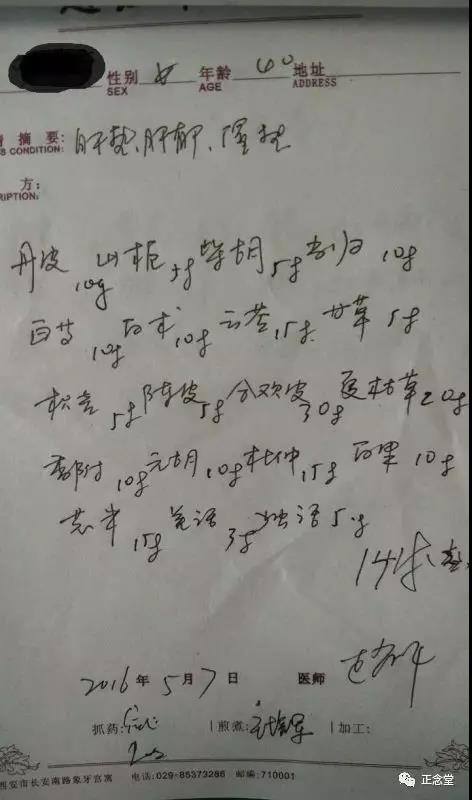 性别 女 年龄 40 地址
SEX AGE ADDRESS
摘要: 肝热、肝郁、湿热
S CONDITION:
方:
RIPTION:
丹皮10g 山栀5g 柴胡5g 当归10g
白芍10g 白术10g 云苓15g 甘草5g
枳壳5g 陈皮5g 合欢皮30g 夏枯草20g
香附10g 元胡10g 杜仲15g 百果10g
15g 羌活3g 独活5g
14付
2016年5月7日 医师
抓药: 煎煮: 加工:
西安市长安南路象牙宫寓 电话:029-85373286 邮编:710001
正念堂